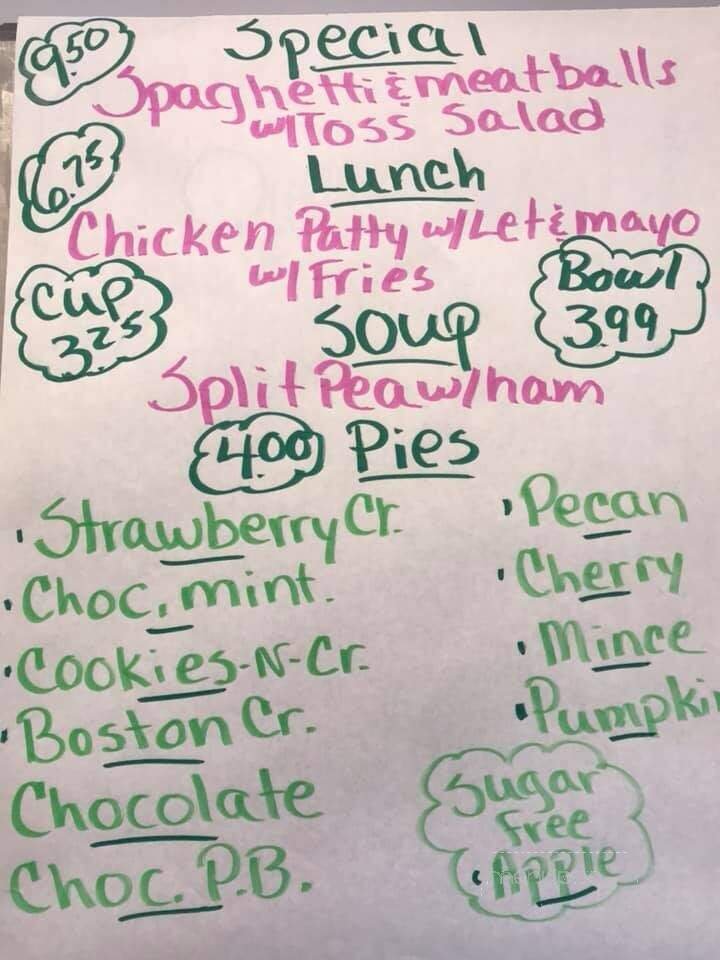 9.50 Special
Spaghetti & meatballs
w/Toss Salad
6.75 Lunch
Chicken Patty w/Let & mayo
w/Fries
Cup
3.25
Soup
Bowl
3.99
Split Pea w/ham
4.00 Pies
· Strawberry Cr.
· Choc. mint.
· Cookies-N-Cr.
· Boston Cr.
Chocolate
Choc. P.B.
· Pecan
· Cherry
· Mince
· Pumpki
Sugar
free
· Apple